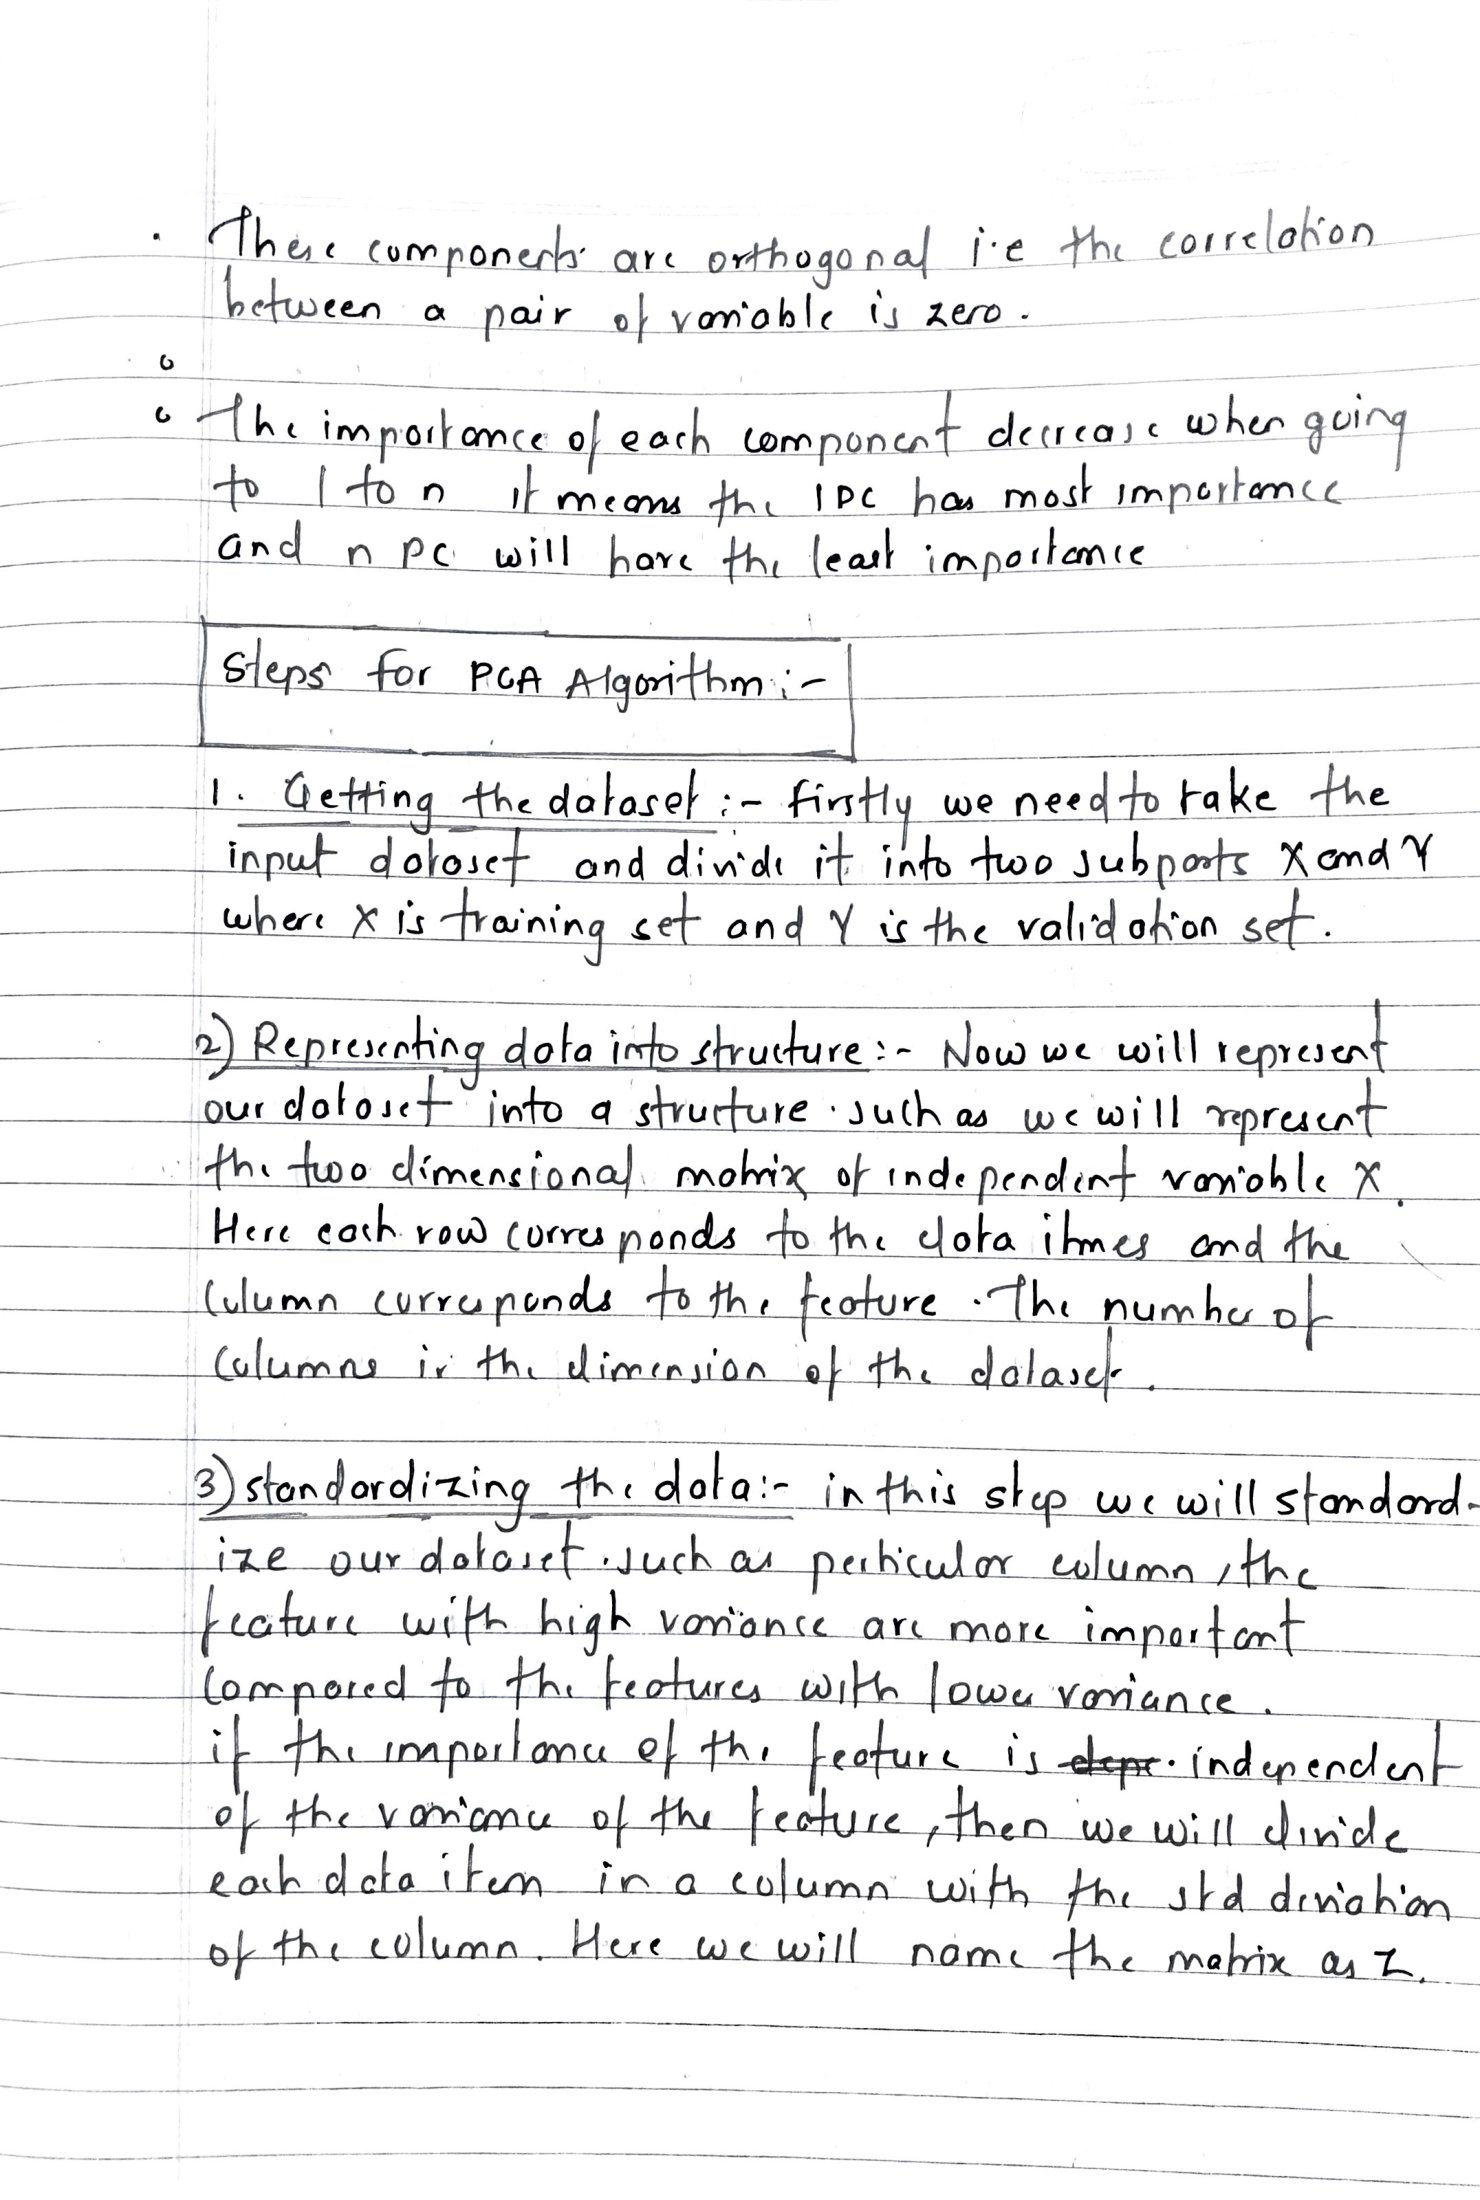 . These components are orthogonal i.e the correlation
between a pair of variable is zero.
The importance of each component decrease when going
to 1 to n it means the 1PC has most importance
and n PC will have the least importance
Steps for PCA Algorithm :-
1. Getting the dataset :- firstly we need to take the
input dataset and divide it into two subparts X and Y
where X is training set and Y is the validation set.
2) Representing data into structure :- Now we will represent
our dataset into a structure. such as we will represent
the two dimensional matrix of independent variable X.
Here each row corresponds to the data itmes and the
Column corresponds to the feature. The number of
Columns is the dimension of the dataset.
3) standardizing the data:- in this step we will standard-
ize our dataset. such as perticular column, the
feature with high variance are more important
Compared to the features with lower variance.
if the importance of the feature is depe. independent
of the variance of the feature, then we will divide
each data item in a column with the std deviation
of the column. Here we will name the matrix as Z.